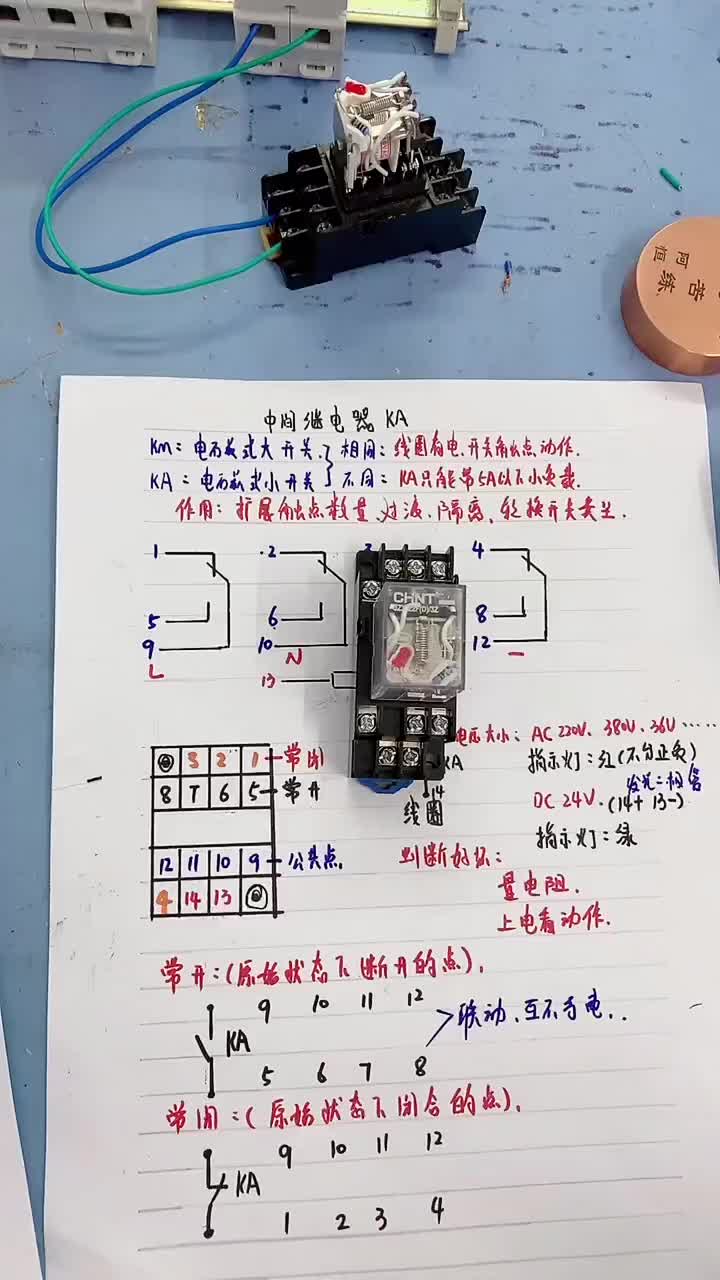 恒
阿
练
苦
中间继电器 KA
KM：电磁式大开关. } 相同：线圈有电.开关触点动作.
KA：电磁式小开关 } 不同：KA只能带5A以下小负载.
作用：扩展触点数量、过渡、隔离、转换开关类型.
1 2 3 4
5 6 8
9 10 12
L N -
13
CHNT
电压大小：AC 220V、380V、36V ······
指示灯：红(不分正负)
KA
14
线圈
DC 24V·(14+ 13-)
指示灯：绿
3 2 1 常闭
8 7 6 5 常开
12 11 10 9 公共点.
4 14 13
判断好坏：
量电阻.
上电看动作.
常开：(原始状态下断开的点).
9 10 11 12
KA
联动、互不导电..
5 6 7 8
常闭：(原始状态下闭合的点).
9 10 11 12
KA
1 2 3 4